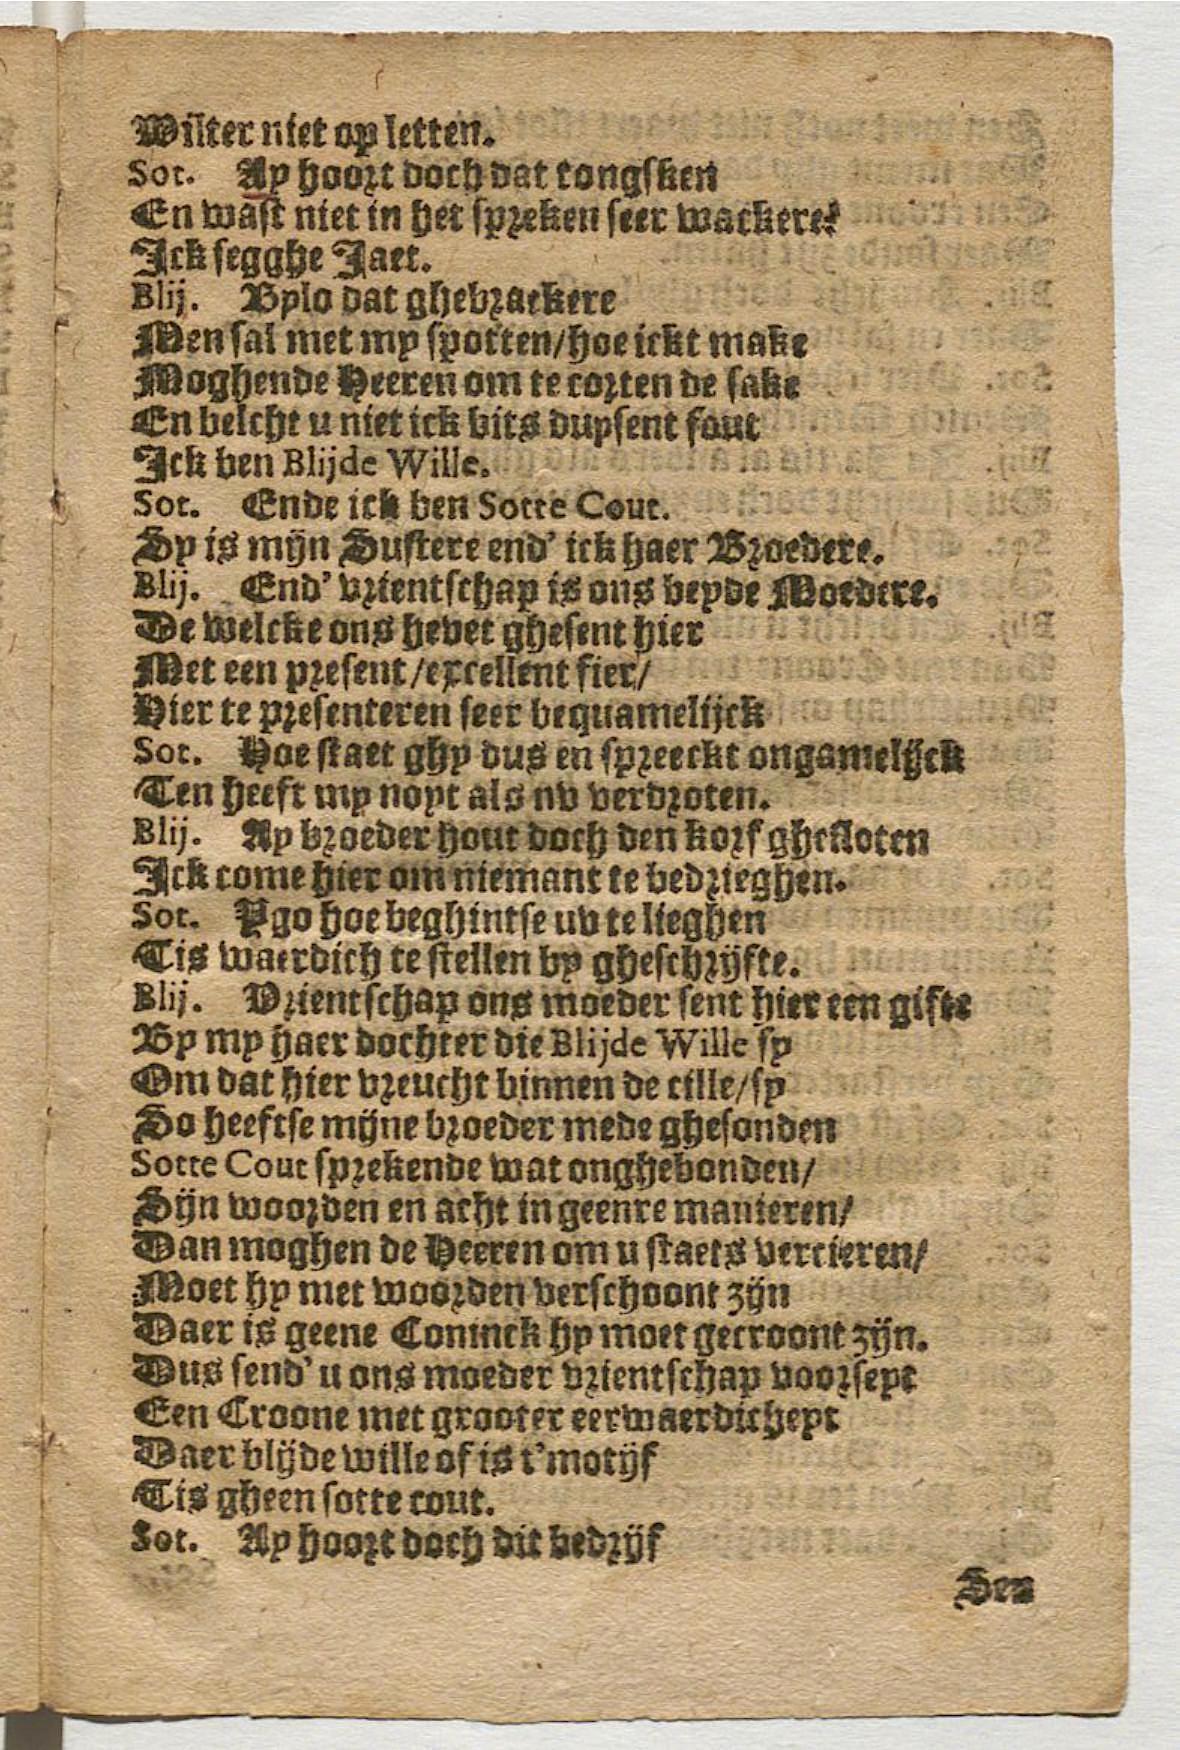 Wilter niet op letten.
Sot. Ay hoort doch dat tongsken
En wast niet in het spreken seer wackere?
Ick segghe Jaet.
Blij. Bylo dat ghebrackere
Men sal met my spotten/hoe ickt make
Moghende Heeren om te corten de sake
En belcht u niet ick bits duysent fout
Ick ben Blijde Wille.
Sot. Ende ick ben Sotte Cout.
Sy is mijn Sustere end' ick haer Broedere.
Blij. End' vrientschap is ons beyde Moedere.
De welcke ons hevet ghesent hier
Met een present/excellent fier/
Hier te presenteren seer bequamelijck
Sot. Hoe staet ghy dus en spreeckt ongamelijck
Ten heeft my noyt als nv verdroten.
Blij. Ay broeder hout doch den korf ghesloten
Ick come hier om niemant te bedrieghen.
Sot. Ygo hoe beghintse nv te lieghen
Tis waerdich te stellen by gheschrijfte.
Blij. Vrientschap ons moeder sent hier een gifte
By my haer dochter die Blijde Wille sy
Om dat hier vreucht binnen de cille/sy
So heeftse mijne broeder mede ghesonden
Sotte Cout sprekende wat onghebonden/
Sijn woorden en acht in geenre manieren/
Dan moghen de Heeren om u staets vercieren/
Moet hy met woorden verschoont zijn
Daer is geene Coninck hy moet gecroont zijn.
Dus send' u ons moeder vrientschap voorseyt
Een Croone met grooter eerwaerdicheyt
Daer blijde wille of is t'motijf
Tis gheen sotte cout.
Sot. Ay hoort doch dit bedrijf
Sen